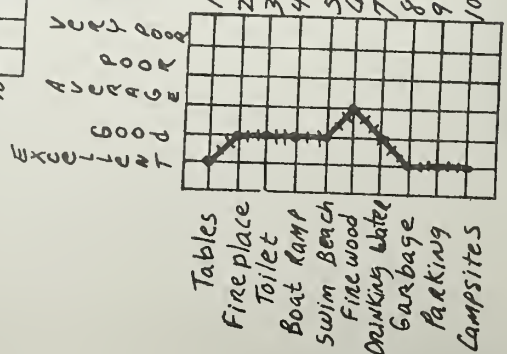 1 2 3 4 5 6 7 8 9 10
VERY POOR
POOR
AVERAGE
GOOD
EXCELLENT
Tables
Fireplace
Toilet
Boat RAMP
Swim Beach
Firewood
DRINKING Water
Garbage
PARKING
Campsites